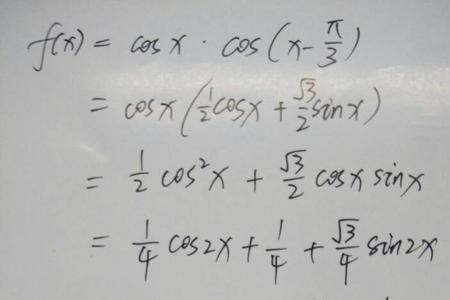 f(x) = cos x · cos(x - π/3)
= cosx(1/2 cosx + √3/2 sinx)
= 1/2 cos²x + √3/2 cosx sinx
= 1/4 cos2x + 1/4 + √3/4 sin2x